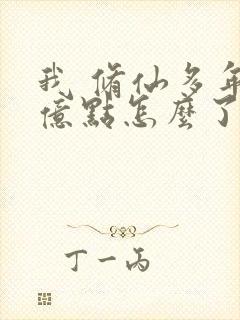 我 脩仙多年
億點怎麼了
丁一丙